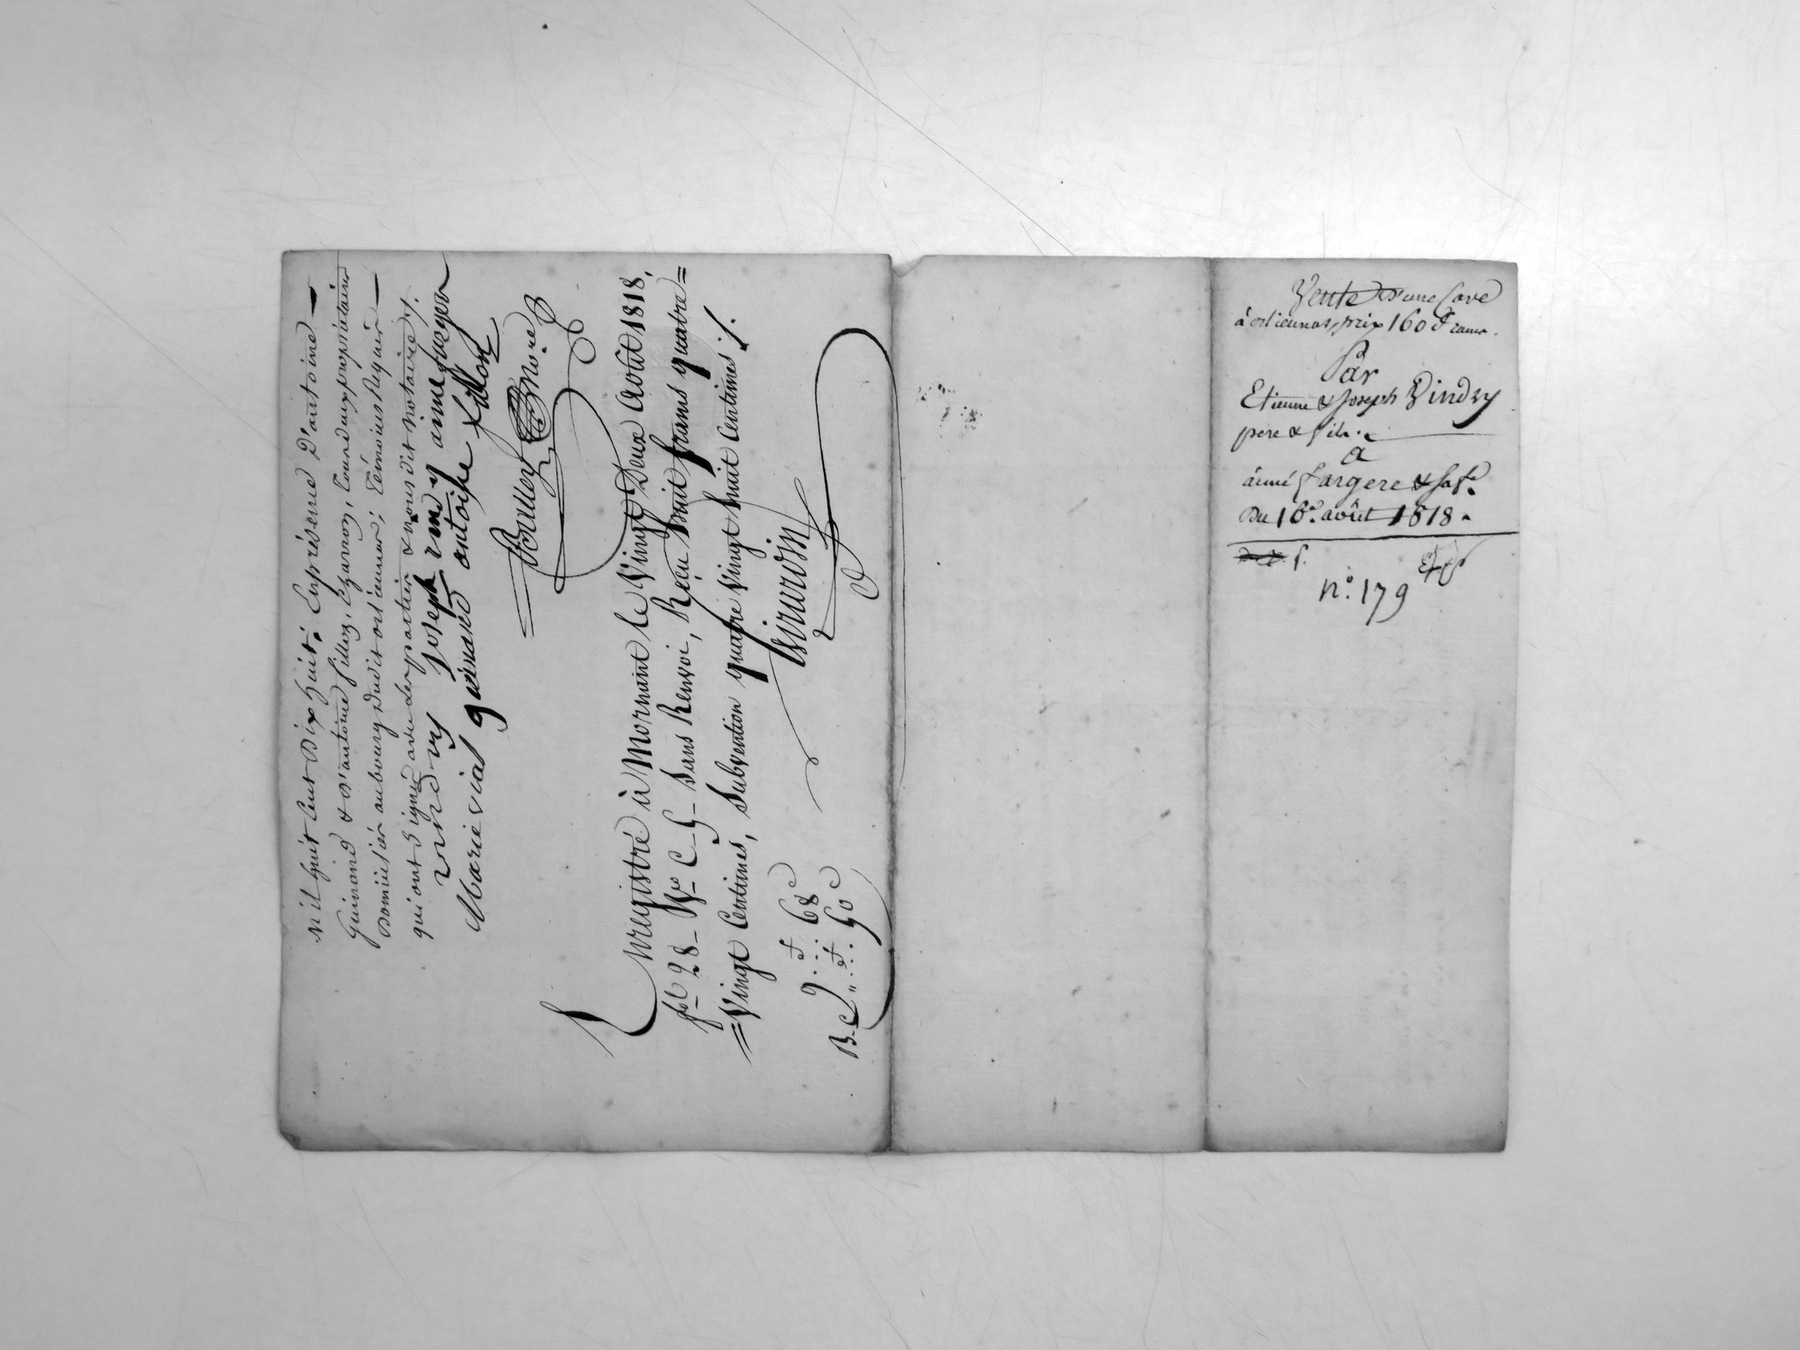 mil huit cent dix huit; En présence d'antoine
guinand & d'antoine fillon, Charron, tous deux propriétaires
domiciliés au bourg dudit orliennas; témoins requis
qui ont signé avec les parties & nous dit notaire ./.
vindry joseph vindry aimé fargere
Marie vial guinand antoine fillon
Boullery Nore
Enregistré à Mornant le Vingt Deux Août 1818,
fol 28 - Vo C 5 - Sans Renvoi, Reçu huit francs quatre=
=Vingt Centimes, Subvention quatre Vingt huit Centimes ./.
Girardin
9 . f .. 68 c
B. C ,, .. f .. 50 c
Vente d'une Cave
à orliennas, prix 160 f. cause.
Par
Etienne & Joseph Vindry
pere & fils.
a
aimé fargere & sa fe.
Du 16e. août 1818.
5.
n.o 179